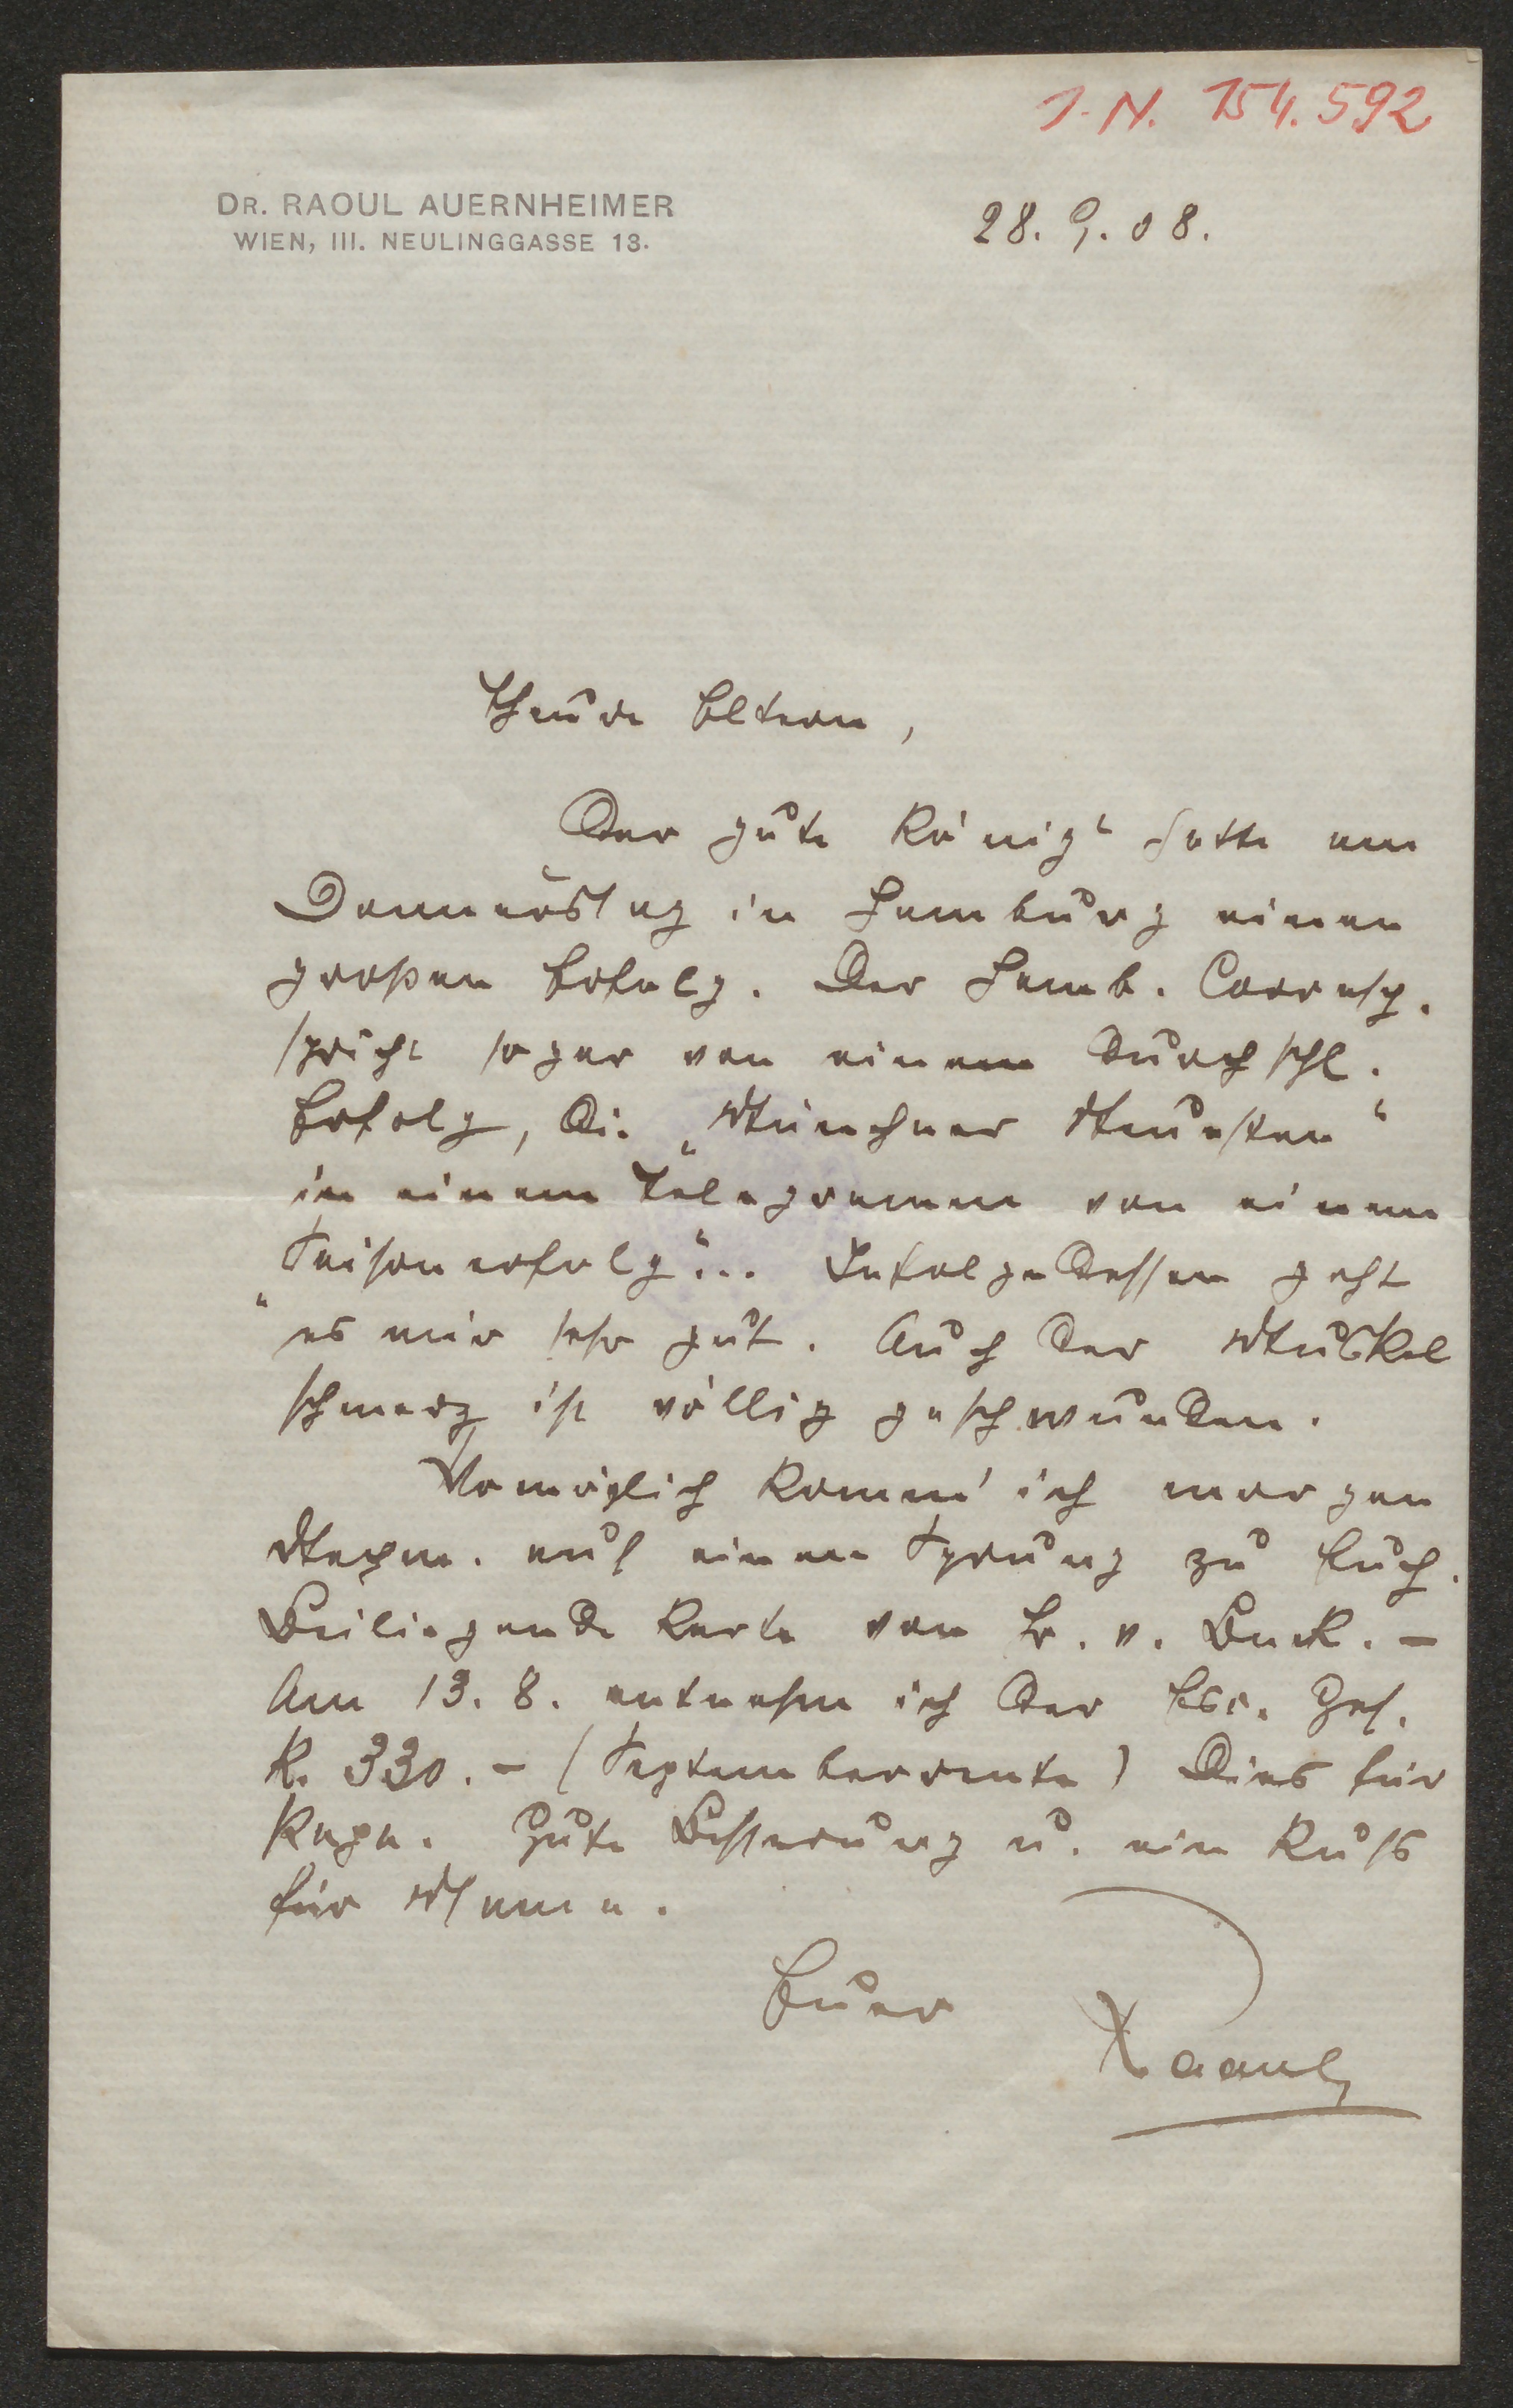 I. N. 154.592
DR. RAOUL AUERNHEIMER
WIEN, III. NEULINGGASSE 13.
28. 9. 08.
Theure Eltern,
Der „gute König“ hatte am
Donnerstag in Hamburg einen
großen Erfolg. Der Hamb. Corresp.
spricht sogar von einem durchschl.
Erfolg, die „Münchner Neuesten“
in einem Telegramm von einem
„Saisonerfolg“... Infolgedessen geht
es mir sehr gut. Auch der Muskel
schmerz ist völlig geschwunden.
Womöglich komm' ich morgen
Nachm. auf einen Sprung zu Euch.
Beiliegende Karte von Fr. v.
Am 13. 8. entnahm ich der Esc. Ges.
K. 330.- (Septemberrente) Dies für
Papa. Gute Besserung u. ein Kuß
für Mama.
Euer
Raoul